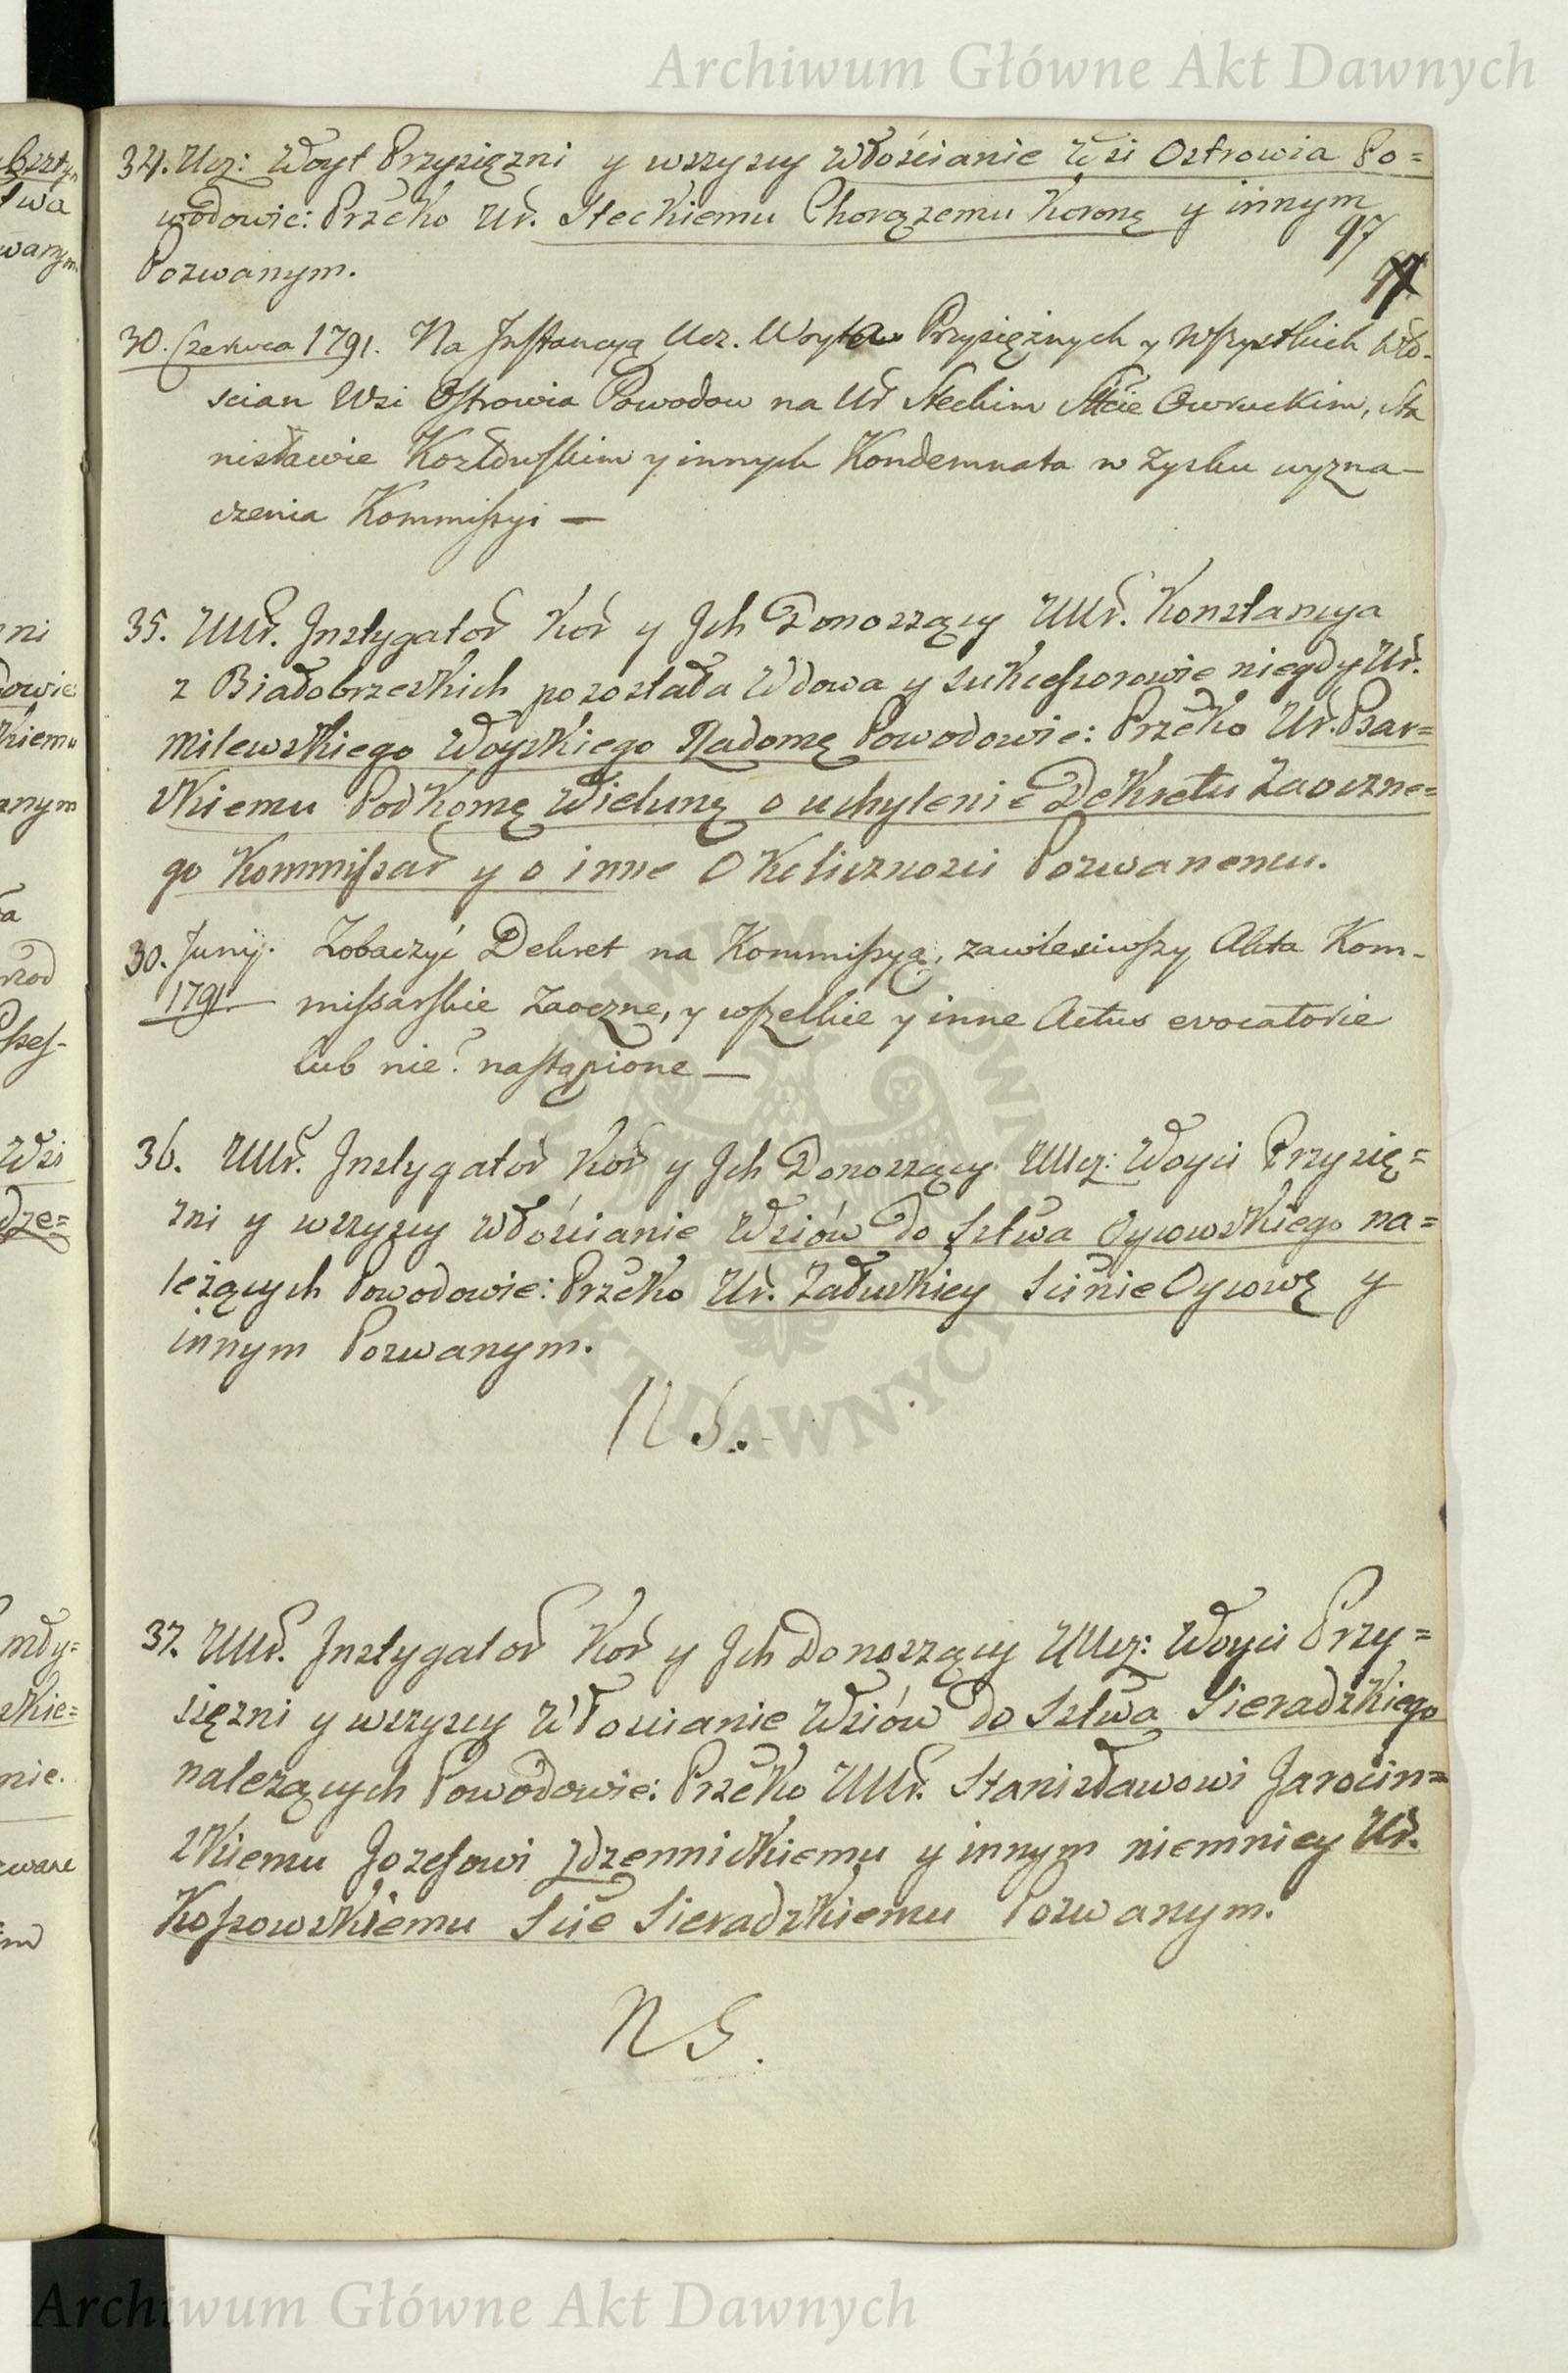 Archiwum Główne Akt Dawnych
34. Ucz: Woyt Przysięzni y wszyscy Włościanie Wsi Ostrowia Po=
wodowie: Przeko Ur. Steckiemu Chorązemu Koronę y innym
97
Pozwanym.
30. Czerwca 1791. Na Jnstancyą Ucz. Woyta Przysiężnych y wszystkich Wło-
scian Wsi Ostrowia Powodow na Ur Steckim Stcie Owruckim, Sta
nisławie Kozłowskim y innych Kondemnata w Zysku wyzna-
czenia Kommissyi —
35. UUr. Jnstygator Kor y Jch Donoszący UUr. Konstancya
z Białobrzeskich pozostała Wdowa y Sukcessorowie niegdy Ur.
Milewskiego Woyskiego Radomę Powodowie: Przeko Ur. Psar=
skiemu PodKomę Wielunę o uchylenie Dekretu Zaoczne=
go Kommissar y o inne Okoliczności Pozwanemu.
30. Junij. Zobaczyć Dekret na Kommissyą, zawiesiwszy Akta Kom-
1791. missarskie Zaoczne, y wszelkie y inne Actus evocatorie
lub nie? nastąpione —
36. UUr. Jnstygator Kor y Jch Donoszący UUcz: Woyci Przysię=
zni y wszyscy Włościanie Wsiów do Sztwa Oycowskiego na=
leżących Powodowie: Przeko Ur. Załuskiey Scinie Oycowę y
innym Pozwanym.
NS.
37. UUr. Jnstygator Kor y Jch Donoszący UUcz: Woyci Przy=
sięzni y wszyscy Włoscianie Wsiów do Sztwa Sieradzkiego
nalezących Powodowie: Przeko UUr. Stanisławowi Jarocin=
skiemu Jozefowi Zdzennickiemu y innym niemniey Ur.
Kossowskiemu Scie Sieradzkiemu Pozwanym.
NS.
Archiwum Główne Akt Dawnych